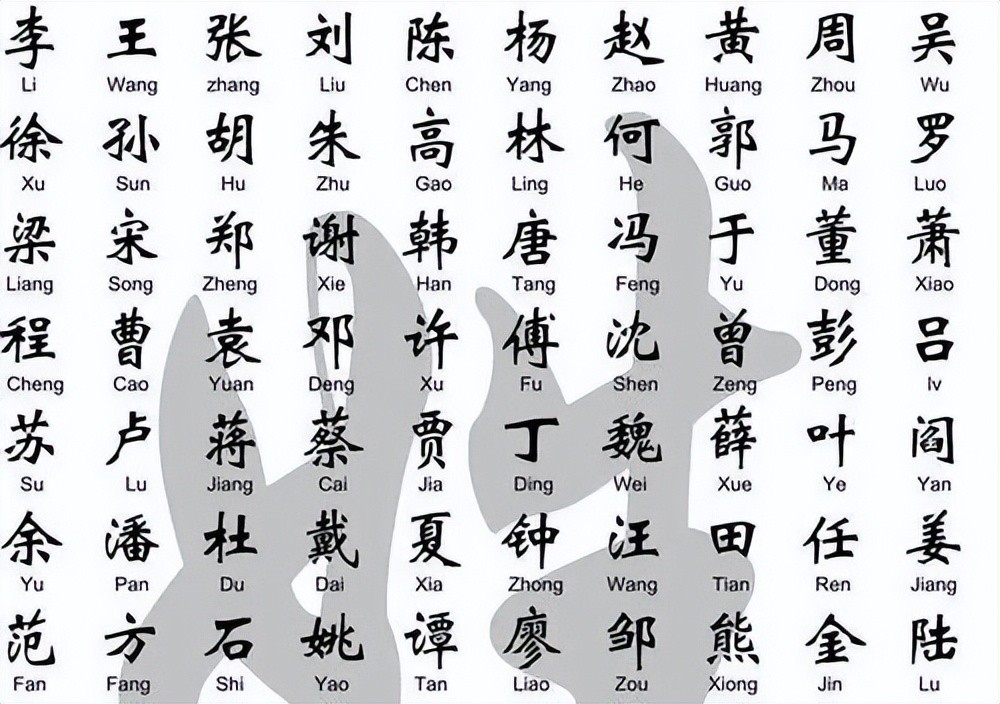 李 王 张 刘 陈 杨 赵 黄 周 吴
Li Wang zhang Liu Chen Yang Zhao Huang Zhou Wu
徐 孙 胡 朱 高 林 何 郭 马 罗
Xu Sun Hu Zhu Gao Ling He Guo Ma Luo
梁 宋 郑 谢 韩 唐 冯 于 董 萧
Liang Song Zheng Xie Han Tang Feng Yu Dong Xiao
程 曹 袁 邓 许 傅 沈 曾 彭 吕
Cheng Cao Yuan Deng Xu Fu Shen Zeng Peng lv
苏 卢 蒋 蔡 贾 丁 魏 薛 叶 阎
Su Lu Jiang Cai Jia Ding Wei Xue Ye Yan
余 潘 杜 戴 夏 钟 汪 田 任 姜
Yu Pan Du Dai Xia Zhong Wang Tian Ren Jiang
范 方 石 姚 谭 廖 邹 熊 金 陆
Fan Fang Shi Yao Tan Liao Zou Xiong Jin Lu